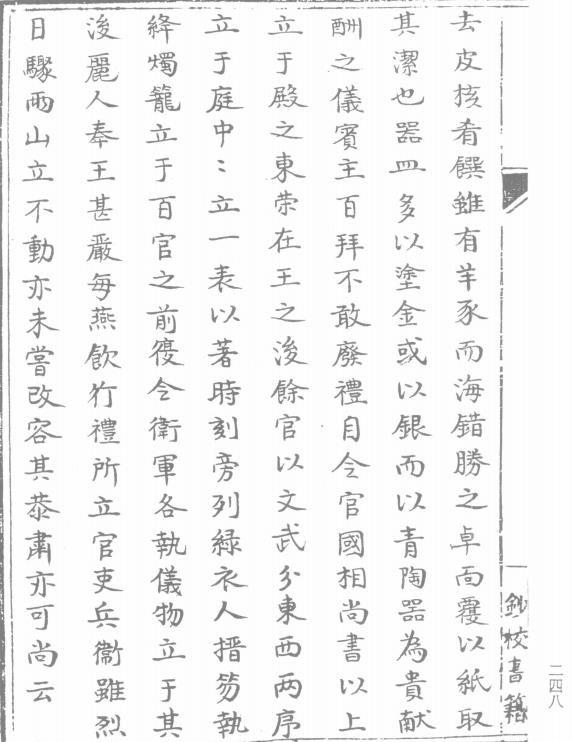 去皮核肴饌雖有羊豕而海錯勝之卓面覆以紙取
其潔也器皿多以塗金或以銀而以青陶器為貴献
酬之儀賓主百拜不敢廢禮自令官國相尚書以上
立于殿之東荣在王之後餘官以文武分東西两序
立于庭中〻立一表以著時刻旁列緑衣人搢笏執
絳燭籠立于百官之前復令衛軍各執儀物立于其
後麗人奉王甚嚴每燕飲行禮所立官吏兵衛雖烈
日驟雨山立不動亦未嘗改容其恭肅亦可尚云
鈔校書籍
二四八